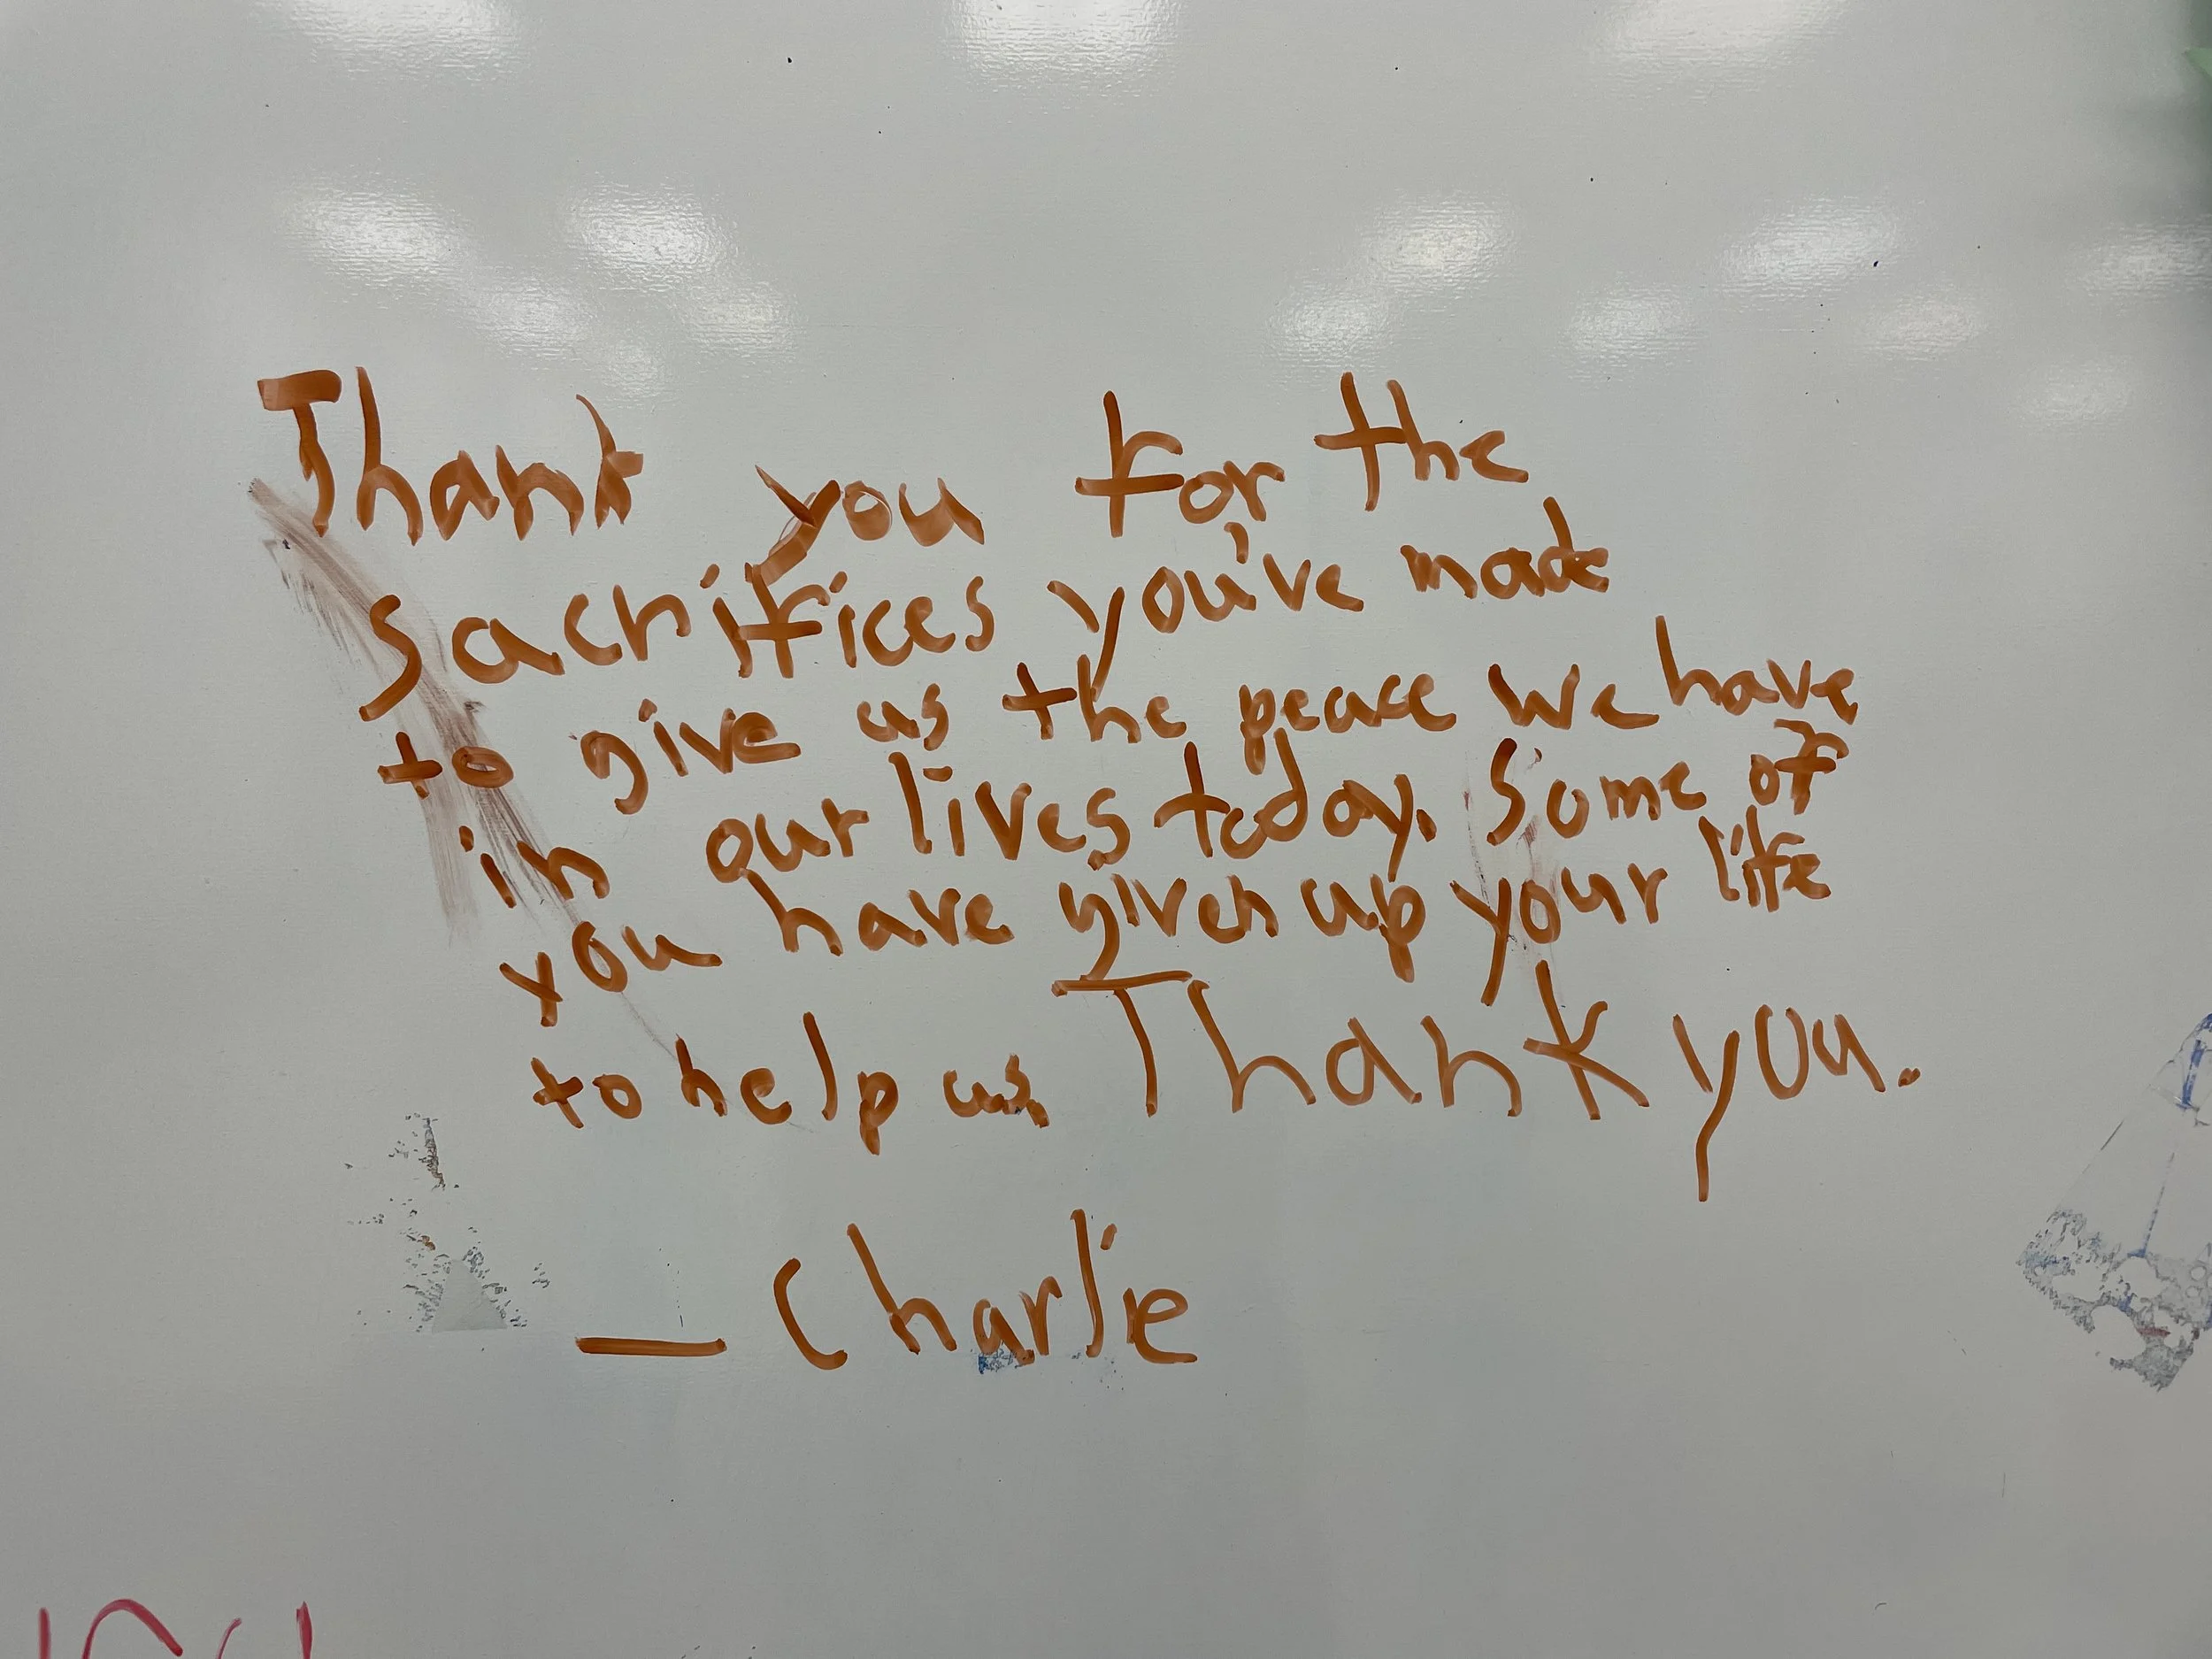 Thank you for the
sacrifices you've made
to give us the peace we have
in our lives today. Some of
you have given up your life
to help us Thank you.
— Charlie